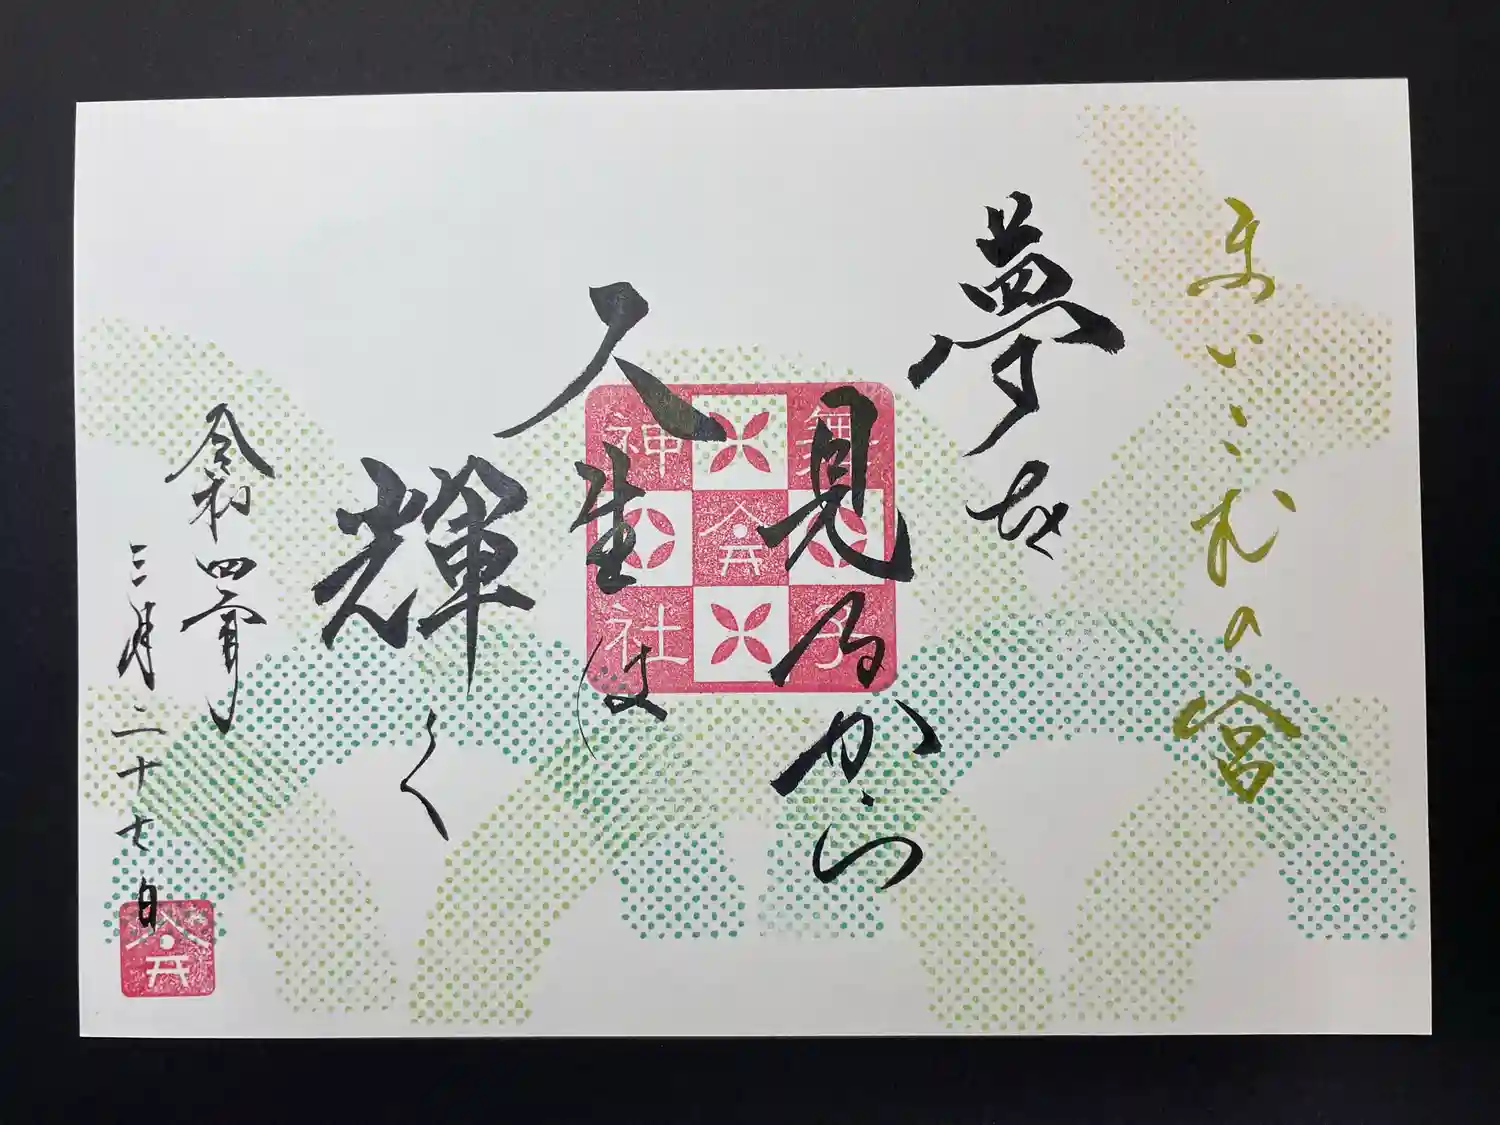 まいこむの宮
夢を
見るから
人生は
輝く
舞子
神社
令和四年
三月二十七日